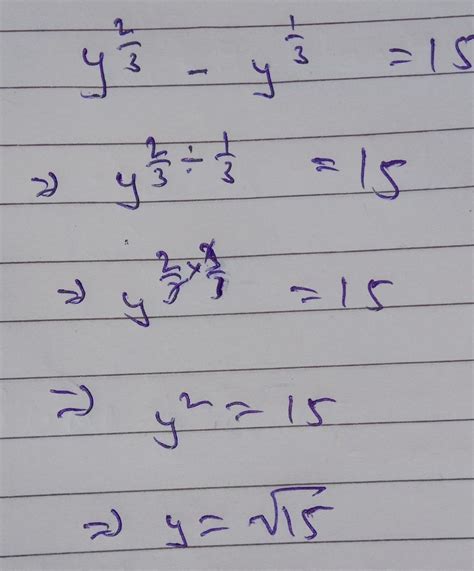 y^(2/3) - y^(1/3) = 15
⇒ y^(2/3 ÷ 1/3) = 15
⇒ y^(2/3 × 3/1) = 15
⇒ y^2 = 15
⇒ y = √15